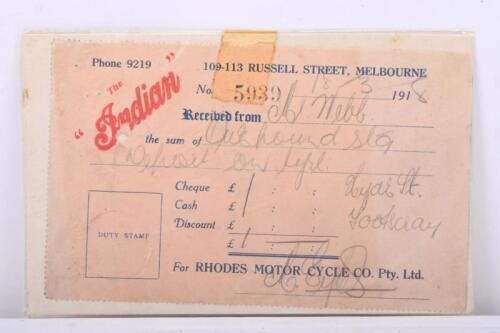 Phone 9219
109-113 RUSSELL STREET, MELBOURNE
"The Indian"
No. 5939 18-3- 1918
Received from A Webb
the sum of One pound stg
Deposit on
Cheque £ 1 : : St.
Cash £ : : Footscray
Discount £ : :
£ 1 : :
DUTY STAMP
For RHODES MOTOR CYCLE CO. Pty. Ltd.